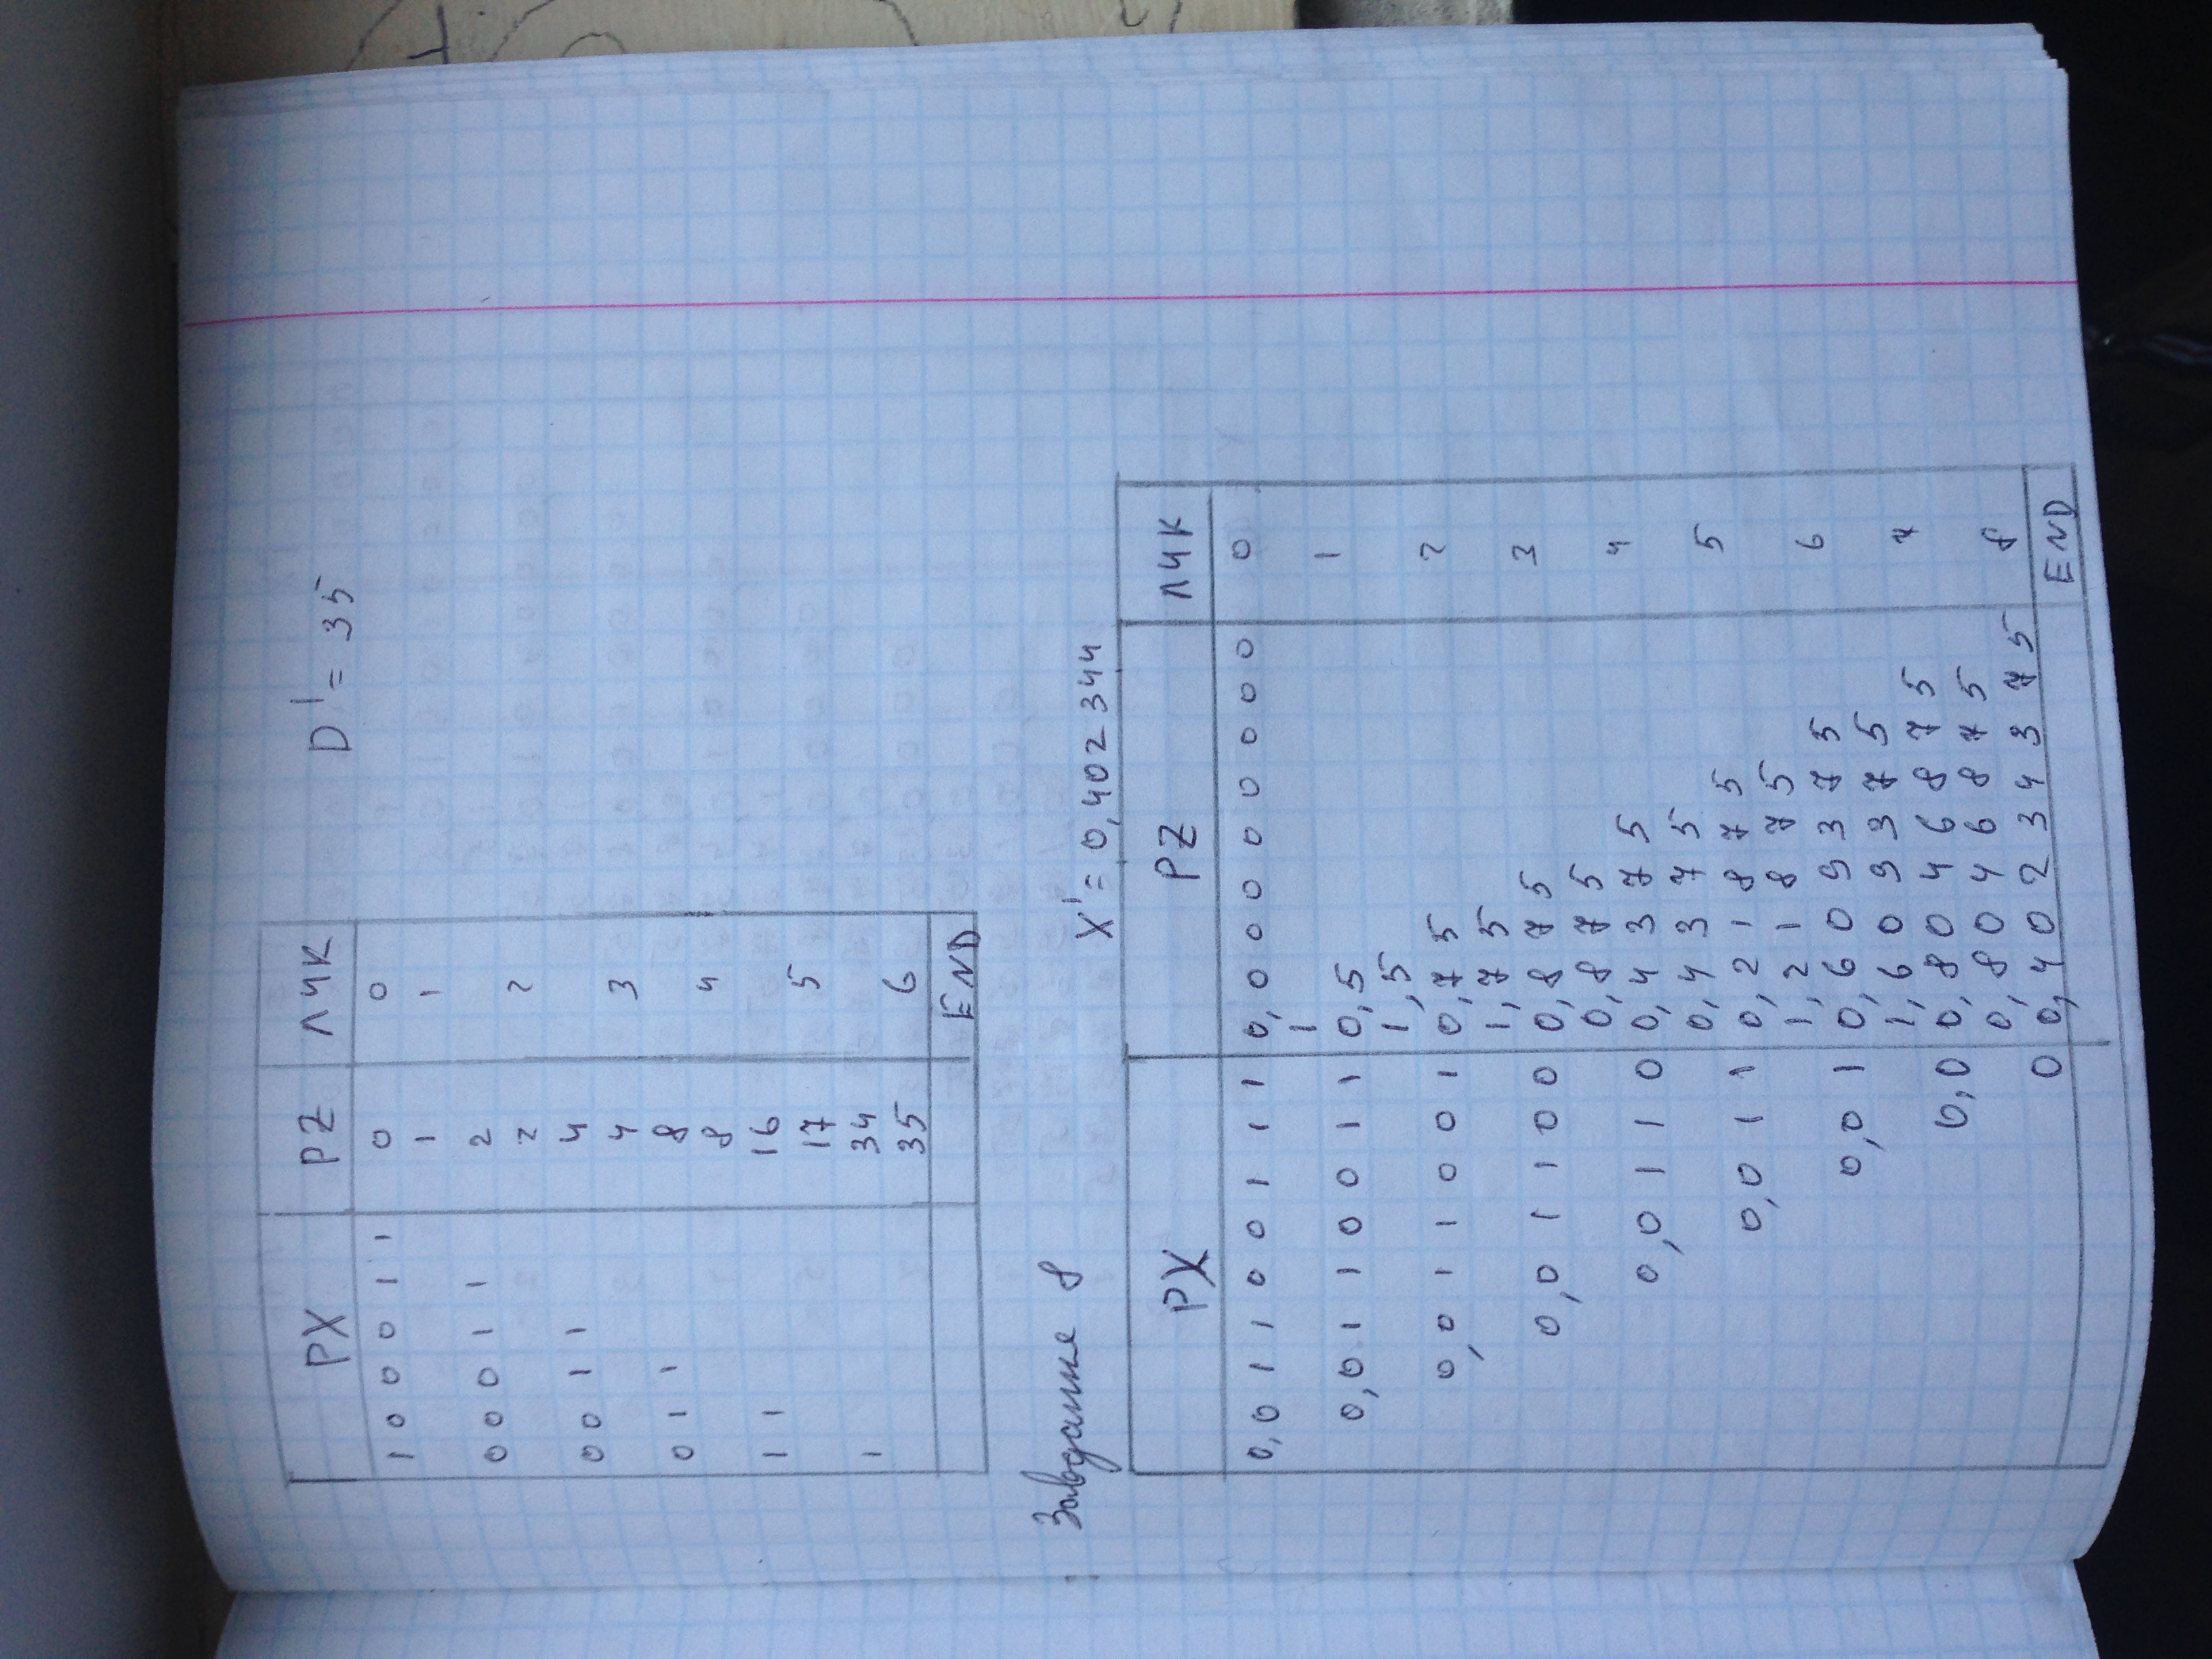 РХ PZ ЛЧК
D' = 35
1 0 0 0 1 1 0 0
1 1
0 0 0 1 1 2
2 2
0 0 1 1 4
4 3
0 1 1 8
8 4
1 1 16
17 5
1 34
35 6
END
Завдання 8
X' = 0,402344
РХ PZ ЛЧК
0,0 1 1 0 0 1 1 1 0,0 0 0 0 0 0 0 0 0
1
0,0 1 1 0 0 1 1 0,5 1
1,5
0,0 1 1 0 0 1 0,7 5 2
1,7 5
0,0 1 1 0 0 0,8 7 5 3
0,8 7 5
0,0 1 1 0 0,4 3 7 5 4
0,4 3 7 5
0,0 1 1 0,2 1 8 7 5 5
1,2 1 8 7 5
0,0 1 0,6 0 9 3 7 5 6
1,6 0 9 3 7 5
0,0 0,8 0 4 6 8 7 5 7
0,8 0 4 6 8 7 5
0 0,4 0 2 3 4 3 7 5 8
END